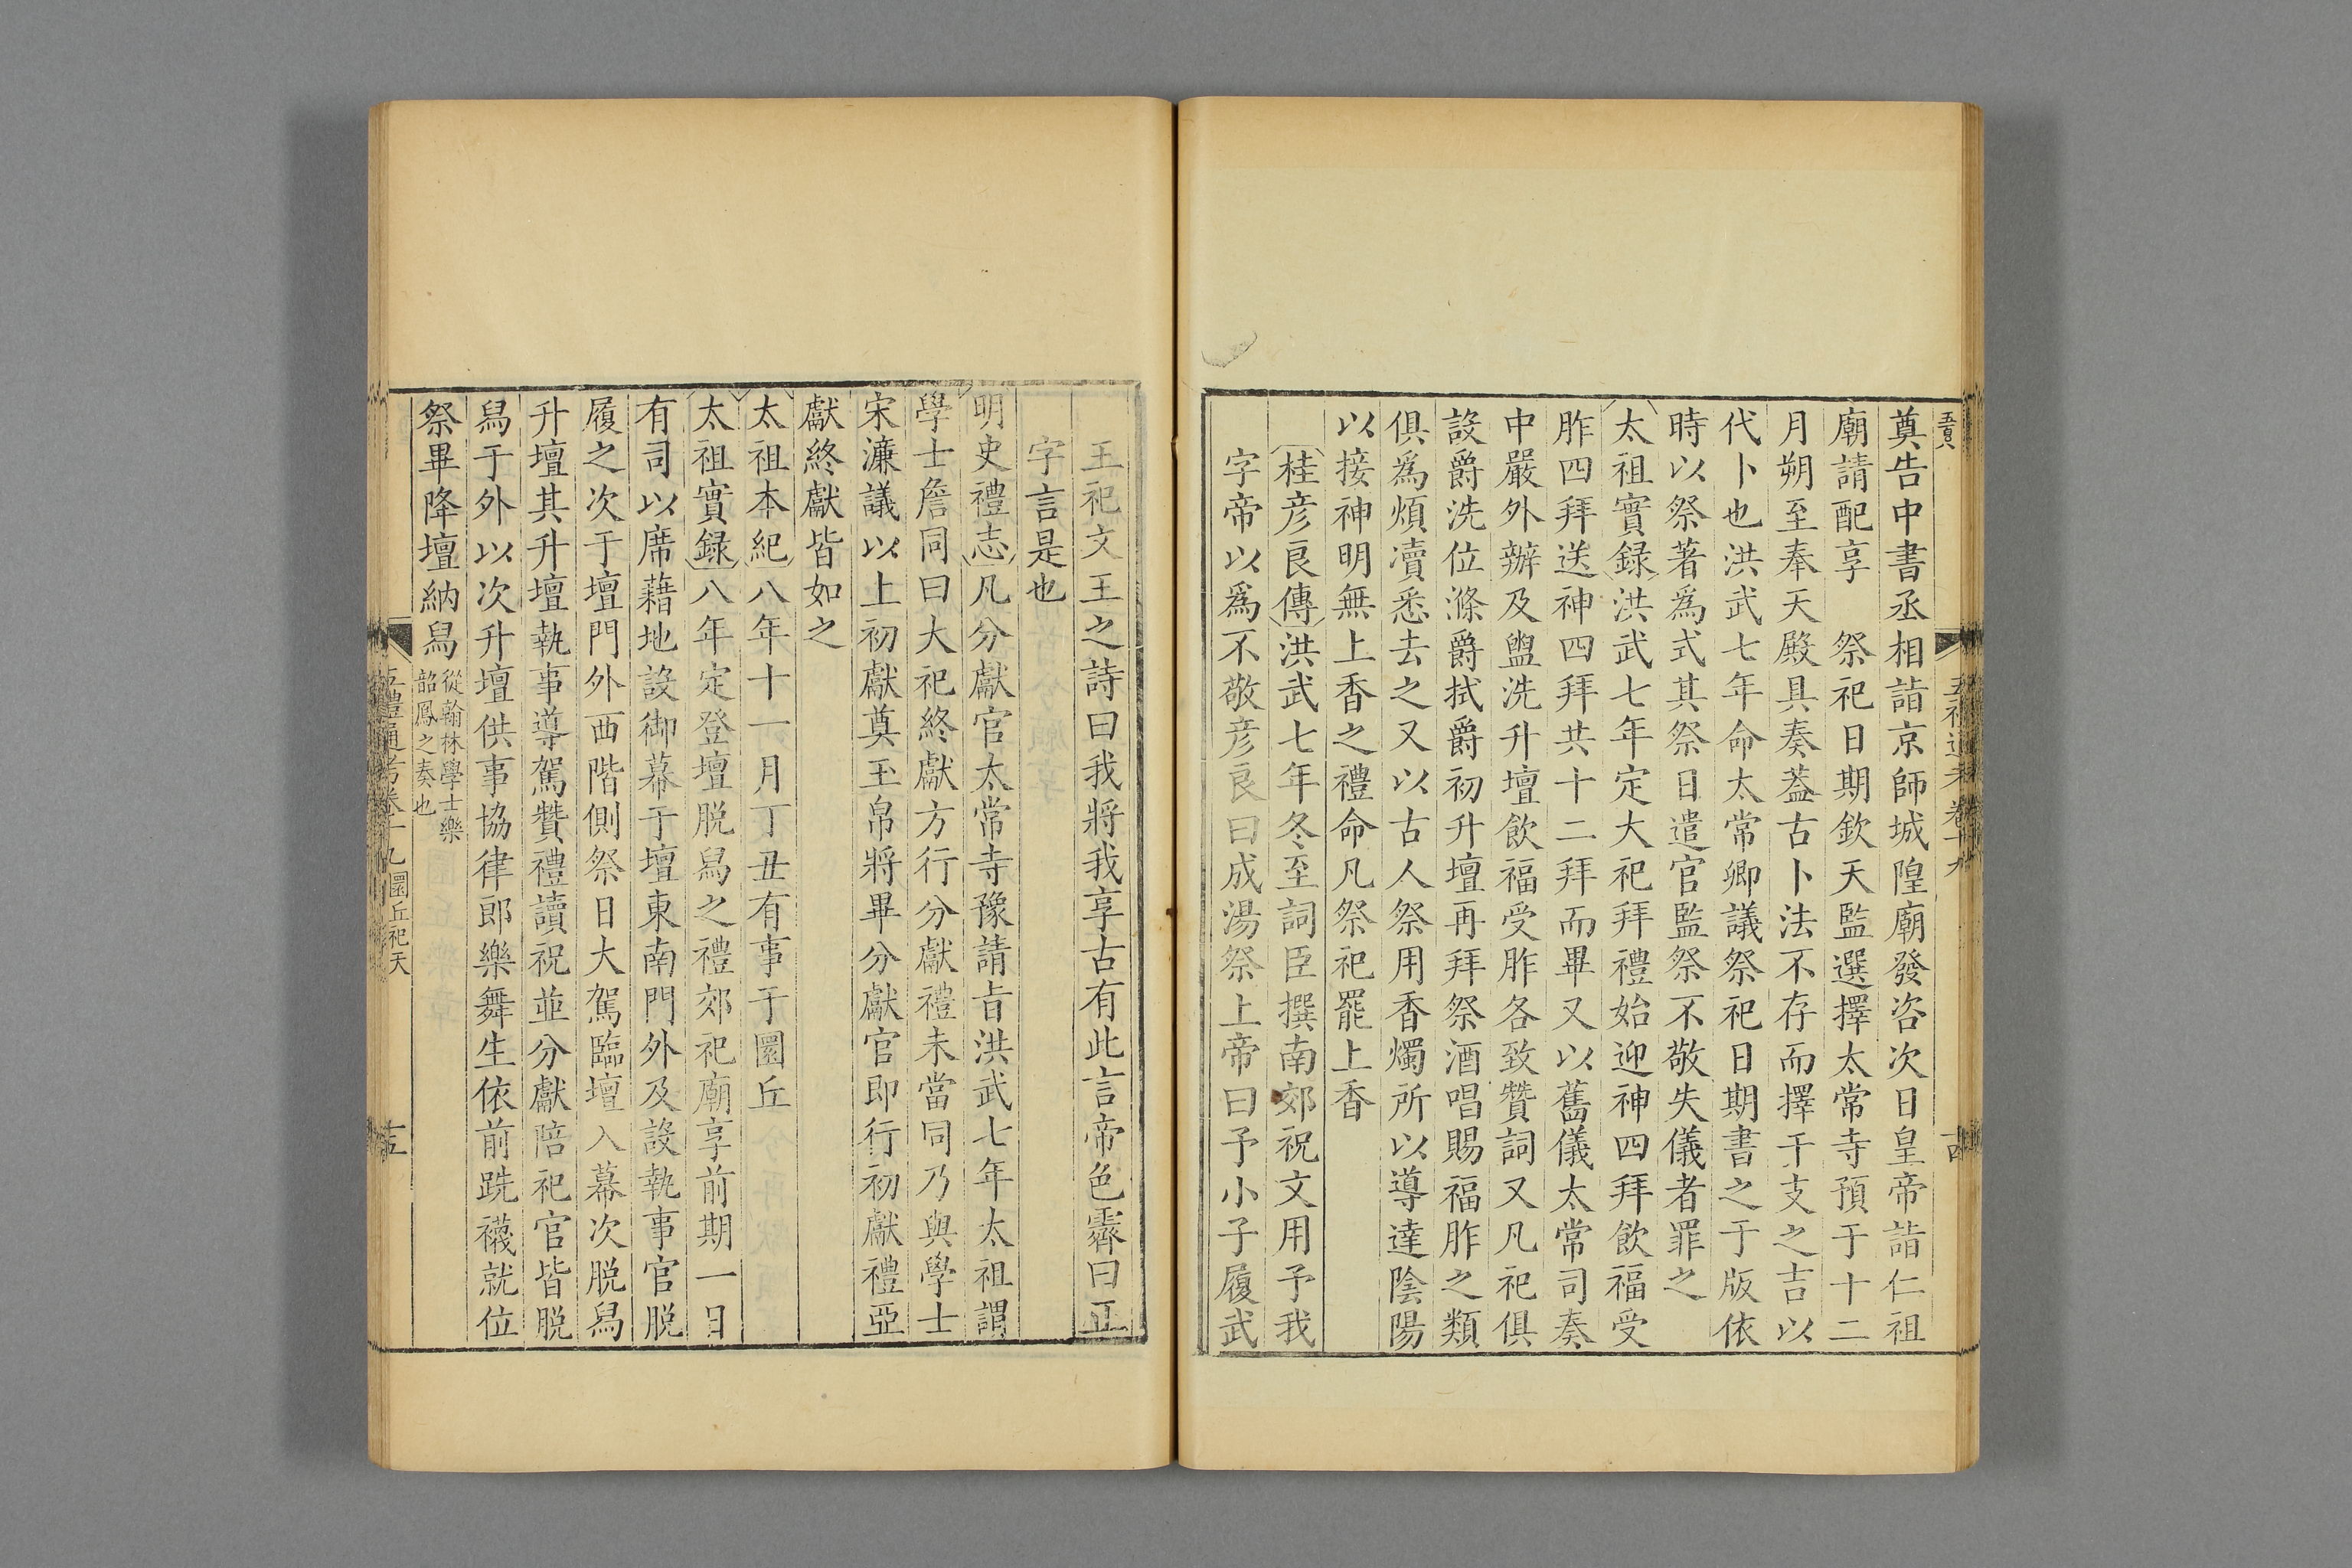 奠告中書丞相詣京師城隍廟發咨次日皇帝詣仁祖
廟請配享　祭祀日期欽天監選擇太常寺預于十二
月朔至奉天殿具奏葢古卜法不存而擇干支之吉以
代卜也洪武七年命太常卿議祭祀日期書之于版依
時以祭著爲式其祭日遣官監祭不敬失儀者罪之
太祖實録洪武七年定大祀拜禮始迎神四拜飲福受
胙四拜送神四拜共十二拜而畢又以舊儀太常司奏
中嚴外辦及盥洗升壇飲福受胙各致贊詞又凡祀俱
設爵洗位滌爵拭爵初升壇再拜祭酒唱賜福胙之類
俱爲煩瀆悉去之又以古人祭用香燭所以導達陰陽
以接神明無上香之禮命凡祭祀罷上香
桂彦良傳洪武七年冬至詞臣撰南郊祝文用予我
字帝以爲不敬彦良曰成湯祭上帝曰予小子履武
王祀文王之詩曰我將我享古有此言帝色霽曰正
字言是也
明史禮志凡分獻官太常寺豫請旨洪武七年太祖謂
學士詹同曰大祀終獻方行分獻禮未當同乃與學士
宋濂議以上初獻奠玉帛將畢分獻官即行初獻禮亞
獻終獻皆如之
太祖本紀八年十一月丁丑有事于圜丘
太祖實録八年定登壇脱舄之禮郊祀廟享前期一日
有司以席藉地設御幕于壇東南門外及設執事官脱
履之次于壇門外西階側祭日大駕臨壇入幕次脱舄
升壇其升壇執事導駕贊禮讀祝並分獻陪祀官皆脱
舄于外以次升壇供事協律郎樂舞生依前跣襪就位
祭畢降壇納舄從翰林學士樂
韶鳳之奏也
五禮通考卷十九圜丘祀天
十五